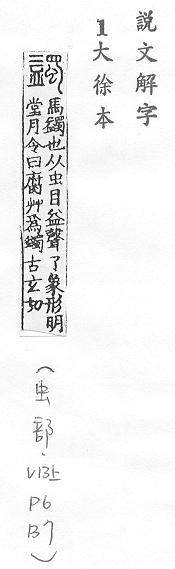 說文解字
1大徐本
蠲
馬蠲也从虫目益聲了象形明
堂月令曰腐艸爲蠲古玄切
(虫部·V13上P6B7)